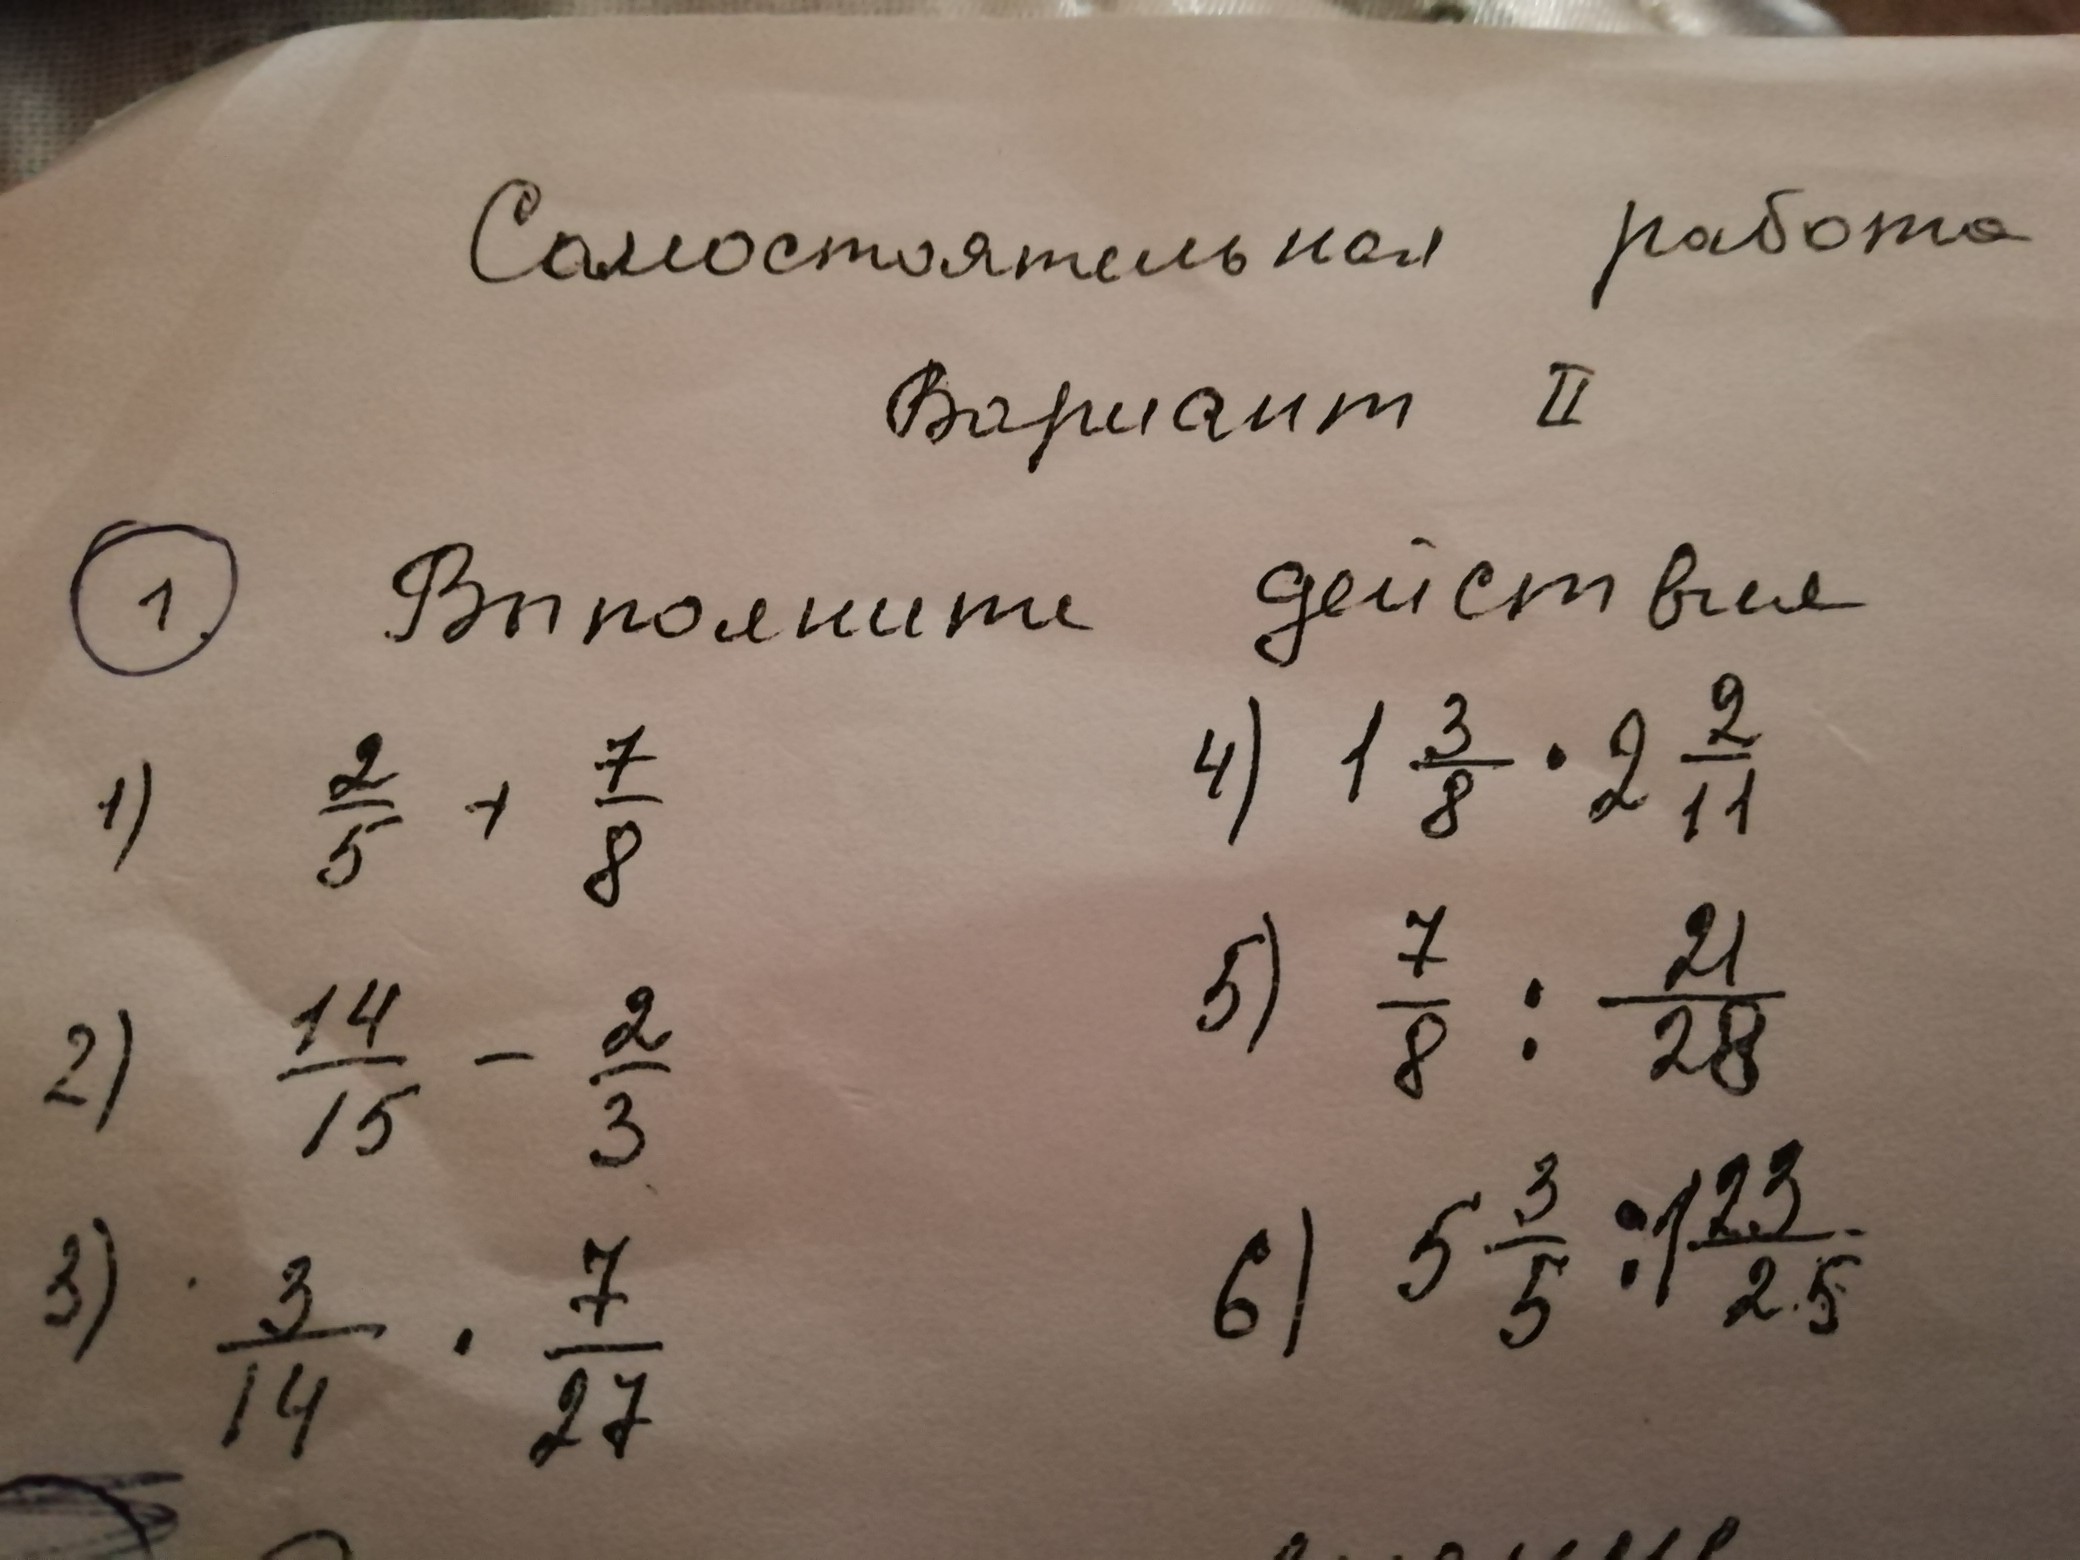 Самостоятельная работа
Вариант II
1. Выполните действия
1) 2/5 + 7/8
2) 14/15 - 2/3
3) 3/14 · 7/27
4) 1 3/8 · 2 2/11
5) 7/8 : 21/28
6) 5 3/5 : 1 23/25